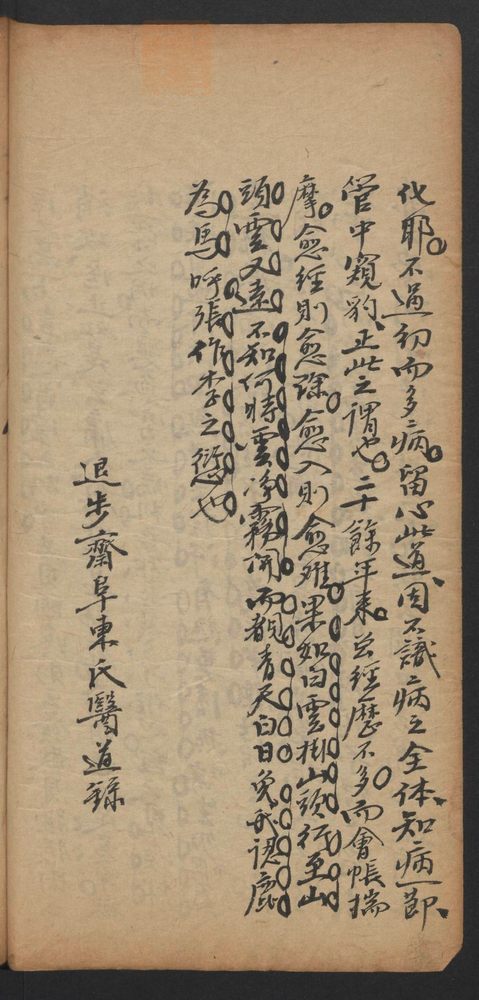 化耶不過初而多病留心此道因不識病之全体知病一節
管中窺豹正此之謂也二十餘年來公經歷不多而會帳揣
摩愈經則愈深愈入則愈难果如白雲掛山頭行至山
頭雲又遠不知何時雲净霧開而覩青天白日免我認鹿
為馬呼張作李之愆也
退步齋阜東氏醫道錄